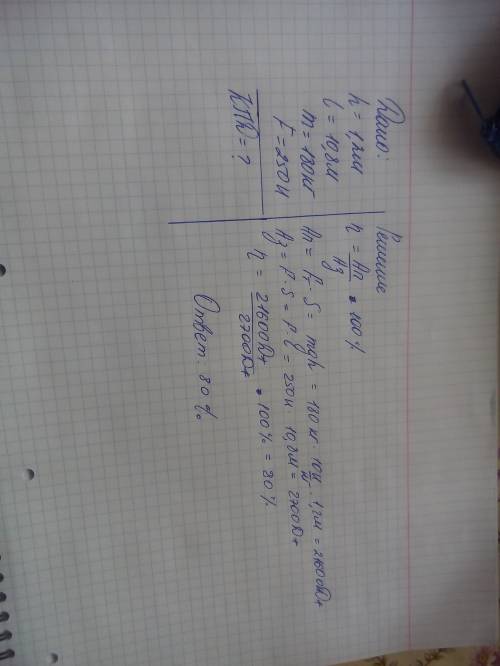 Дано:
h = 1,2м
l = 10,8м
m = 180кг
F = 250Н
КПД = ?
Решение
η = Ап/Аз • 100%
Ап = Fт · S = mgh = 180 кг · 10 Н/кг · 1,2м = 2160Дж
Аз = F · S = F · l = 250Н 10,8м = 2700Дж
η = 2160Дж/2700Дж • 100% = 80%
Ответ: 80%.